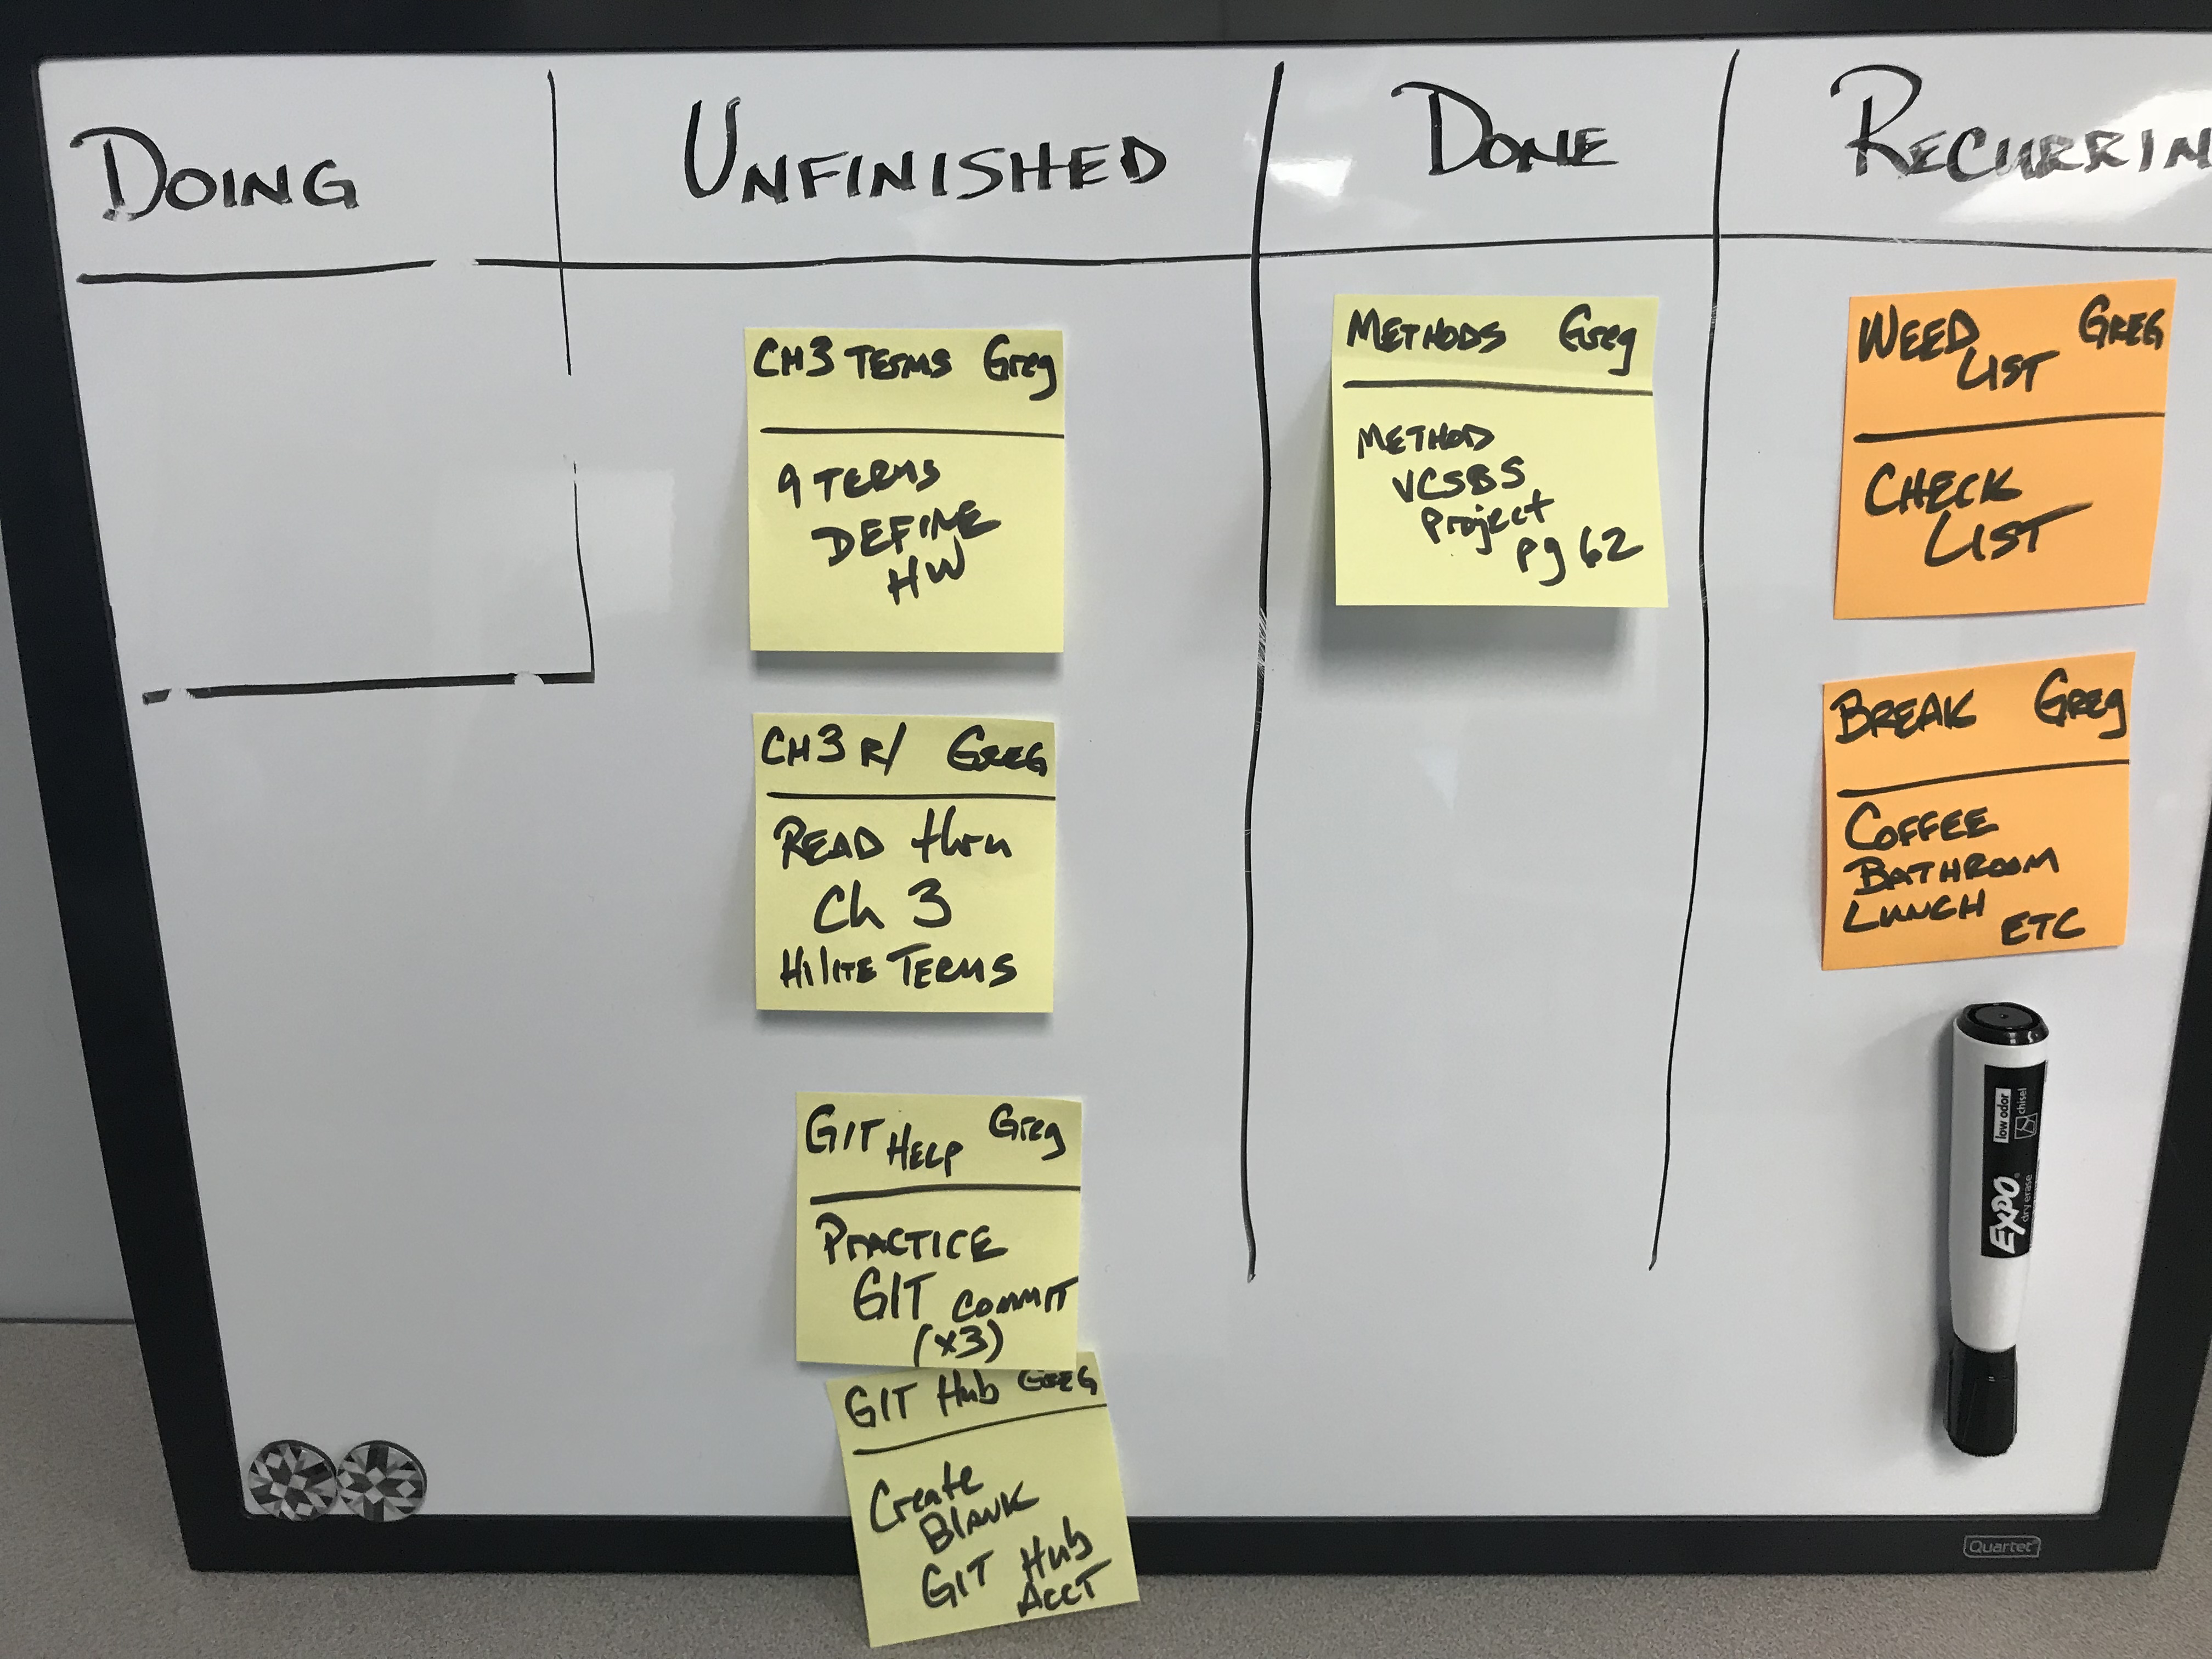 DOING
UNFINISHED
DONE
RECURRIN
CH3 TERMS Greg
9 TERMS
DEFINE
HW
CH3 R/ GREG
READ thru
Ch 3
HiliTE TERMS
GIT HELP Greg
PRACTICE
GIT COMMIT
(x3)
GIT Hub GREG
Create
BLANK
GIT Hub
ACCT
METHODS Greg
METHOD
VCSBS
Project
pg 62
WEED GREG
LIST
CHECK
LIST
BREAK Greg
COFFEE
BATHROOM
LUNCH
ETC
low odor
chisel
EXPO
dry erase
Quartet